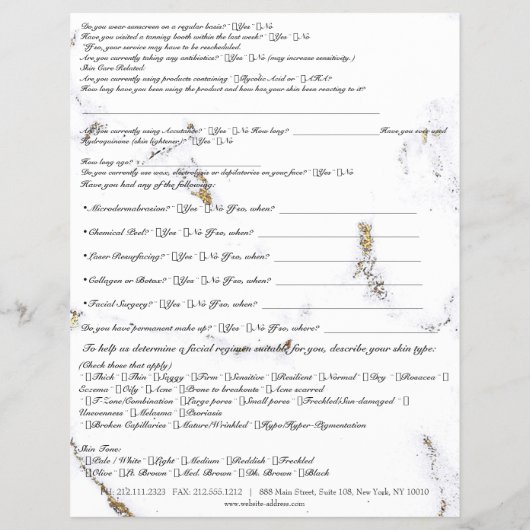 Do you wear sunscreen on a regular basis?¨ ▯Yes¨ ▯No
Have you visited a tanning booth within the last week? ¨ ▯Yes¨ ▯No
¨If so, your service may have to be rescheduled.
Are you currently taking any antibiotics?¨ ▯Yes¨ ▯No (may increase sensitivity.)
Skin Care Related:
Are you currently using products containing¨ ▯Glycolic Acid or¨ ▯AHA?
How long have you been using the product and how has your skin been reacting to it?
Are you currently using Accutane?¨ ▯Yes¨ ▯No How long? ____ Have you ever used
Hydroquinone (skin lightener)?¨ ▯Yes¨ ▯No
How long ago? ____
Do you currently use wax, electrolysis or depilatories on your face? ¨ ▯Yes¨ ▯No
Have you had any of the following:
•Microdermabrasion?¨ ▯Yes¨ ▯No If so, when? ____
•Chemical Peel?¨ ▯Yes¨ ▯No If so, when? ____
•Laser Resurfacing?¨ ▯Yes¨ ▯No If so, when? ____
•Collagen or Botox?¨ ▯Yes¨ ▯No If so, when? ____
•Facial Surgery?¨ ▯Yes¨ ▯No If so, when? ____
Do you have permanent make up?¨ ▯Yes¨ ▯No If so, where? ____
To help us determine a facial regimen suitable for you, describe your skin type:
(Check those that apply)
¨ ▯Thick¨ ▯Thin¨ ▯Saggy¨ ▯Firm¨ ▯Sensitive¨ ▯Resilient¨ ▯Normal¨ ▯Dry¨ ▯Rosacea¨ ▯
Eczema¨ ▯Oily¨ ▯Acne¨ ▯Prone to breakouts¨ ▯Acne scarred
¨ ▯T-Zone/Combination¨ ▯Large pores¨ ▯Small pores¨ ▯Freckled/Sun-damaged¨ ▯
Unevenness¨ ▯Melasma¨ ▯Psoriasis
¨ ▯Broken Capillaries¨ ▯Mature/Wrinkled¨ ▯Hypo/Hyper-Pigmentation
Skin Tone:
¨ ▯Pale / White¨ ▯Light¨ ▯Medium¨ ▯Reddish¨ ▯Freckled
¨ ▯Olive¨ ▯Lt. Brown¨ ▯Med. Brown¨ ▯Dk. Brown¨ ▯Black
PH: 212.111.2323 FAX: 212.555.1212 | 888 Main Street, Suite 108, New York, NY 10010
www.website-address.com